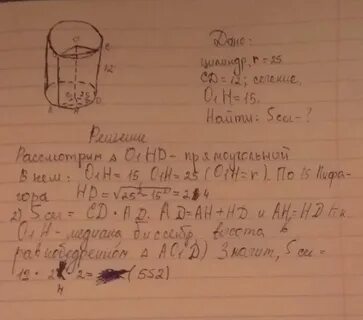 Дано:
цилиндр, r=25
CD=12; сечение,
O₁H=15.
Найти: Sсеч-?
C
12
25
A
H
D
Решение
Рассмотрим △ O₁HD - прямоугольный
В нём: O₁H=15, O₁H=25 (O₁H=r). По т. Пифа-
гора HD=√25²-15²=24
2) Sсеч = CD · AD. AD=AH+HD и AH=HD т.к.
O₁H - медиана биссектр. высота в
равнобедренном △ AO₁D) Значит, Sсеч=
12 · 24 · 2 = (552)